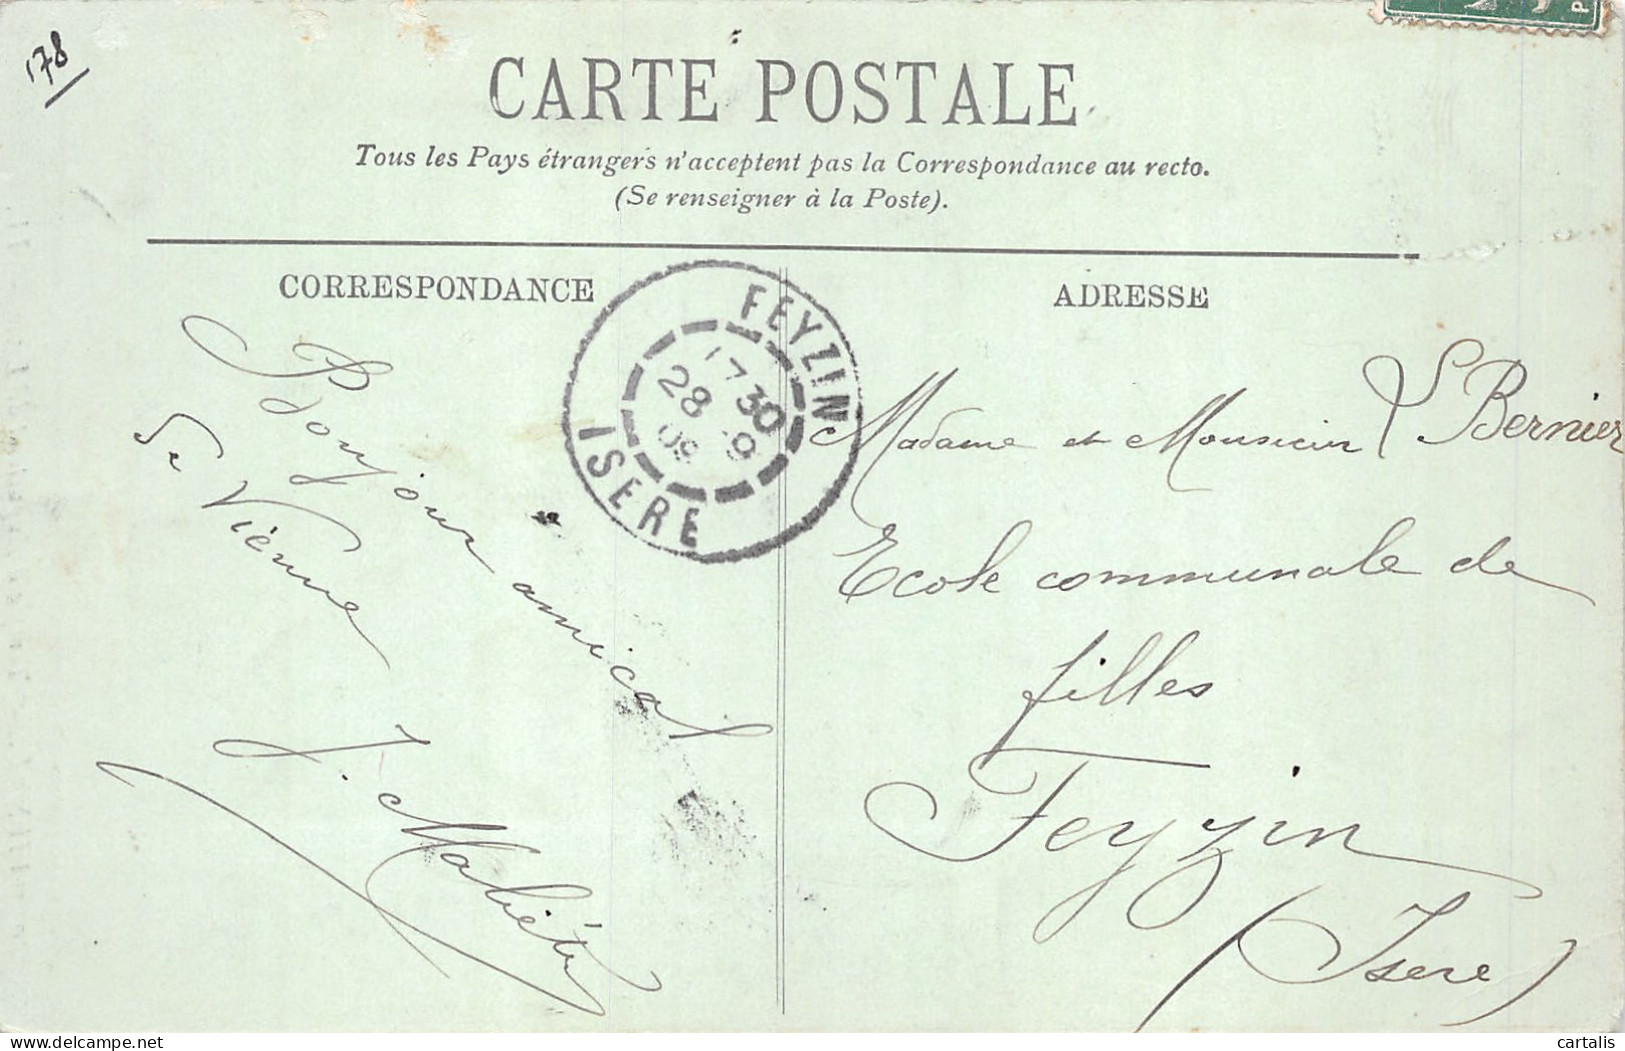 178
CARTE POSTALE
Tous les Pays étrangers n'acceptent pas la Correspondance au recto.
(Se renseigner à la Poste).
CORRESPONDANCE
ADRESSE
FEYZIN
17 30
28 9
09
ISERE
Bonjour amical
De Vienne
J.
Madame et Monsieur Bernier
Ecole communale de
filles
Feyzin
(Isère)
cartalis